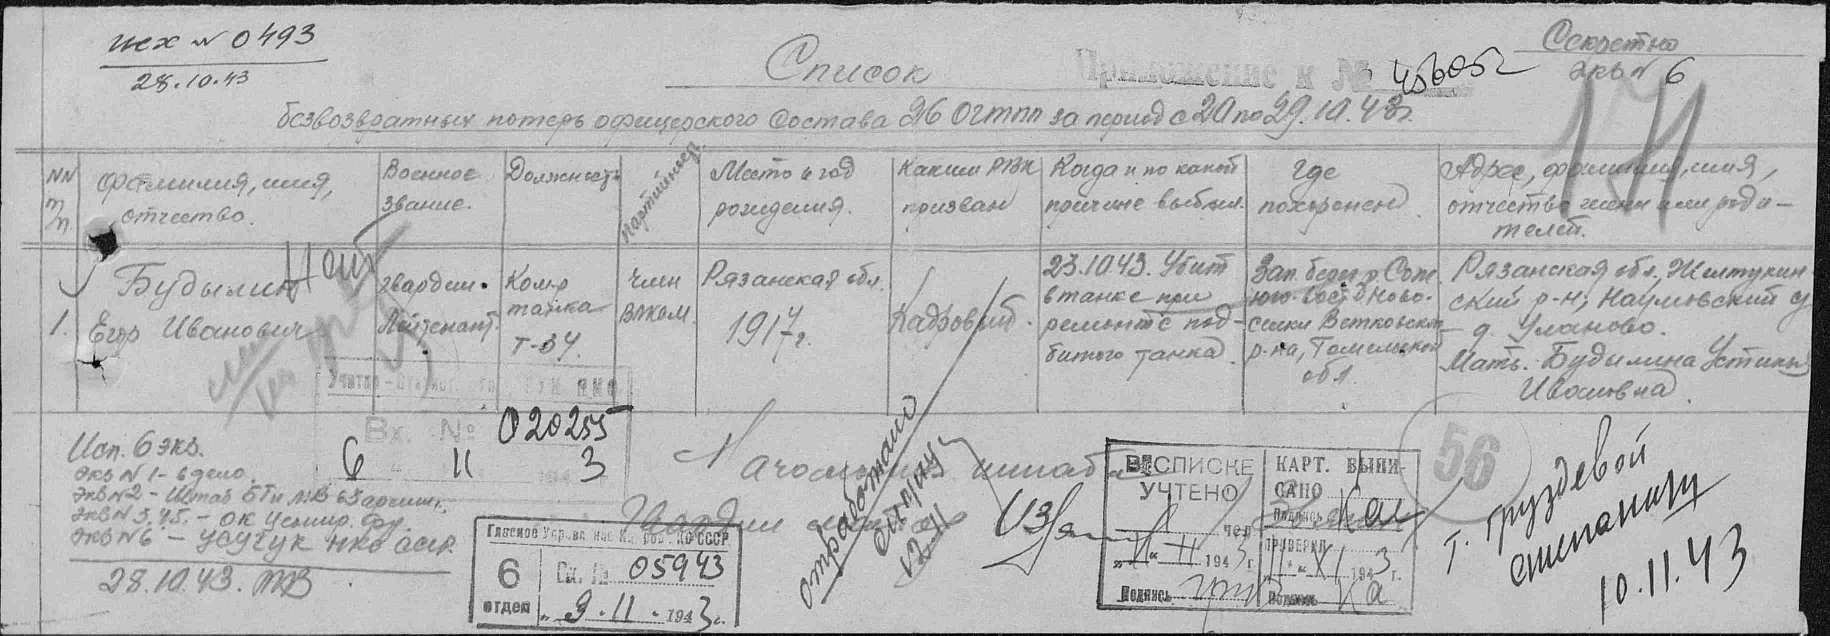 исх N 0493
28.10.43
Секретно
экз N 6
Список
Приложение к №
безвозвратных потерь офицерского состава 26 ОГТПП за период с 20 по 29.10.43г.
NN п/п
Фамилия, имя, отчество.
Военное звание.
Должность
партийнос.
Место и год рождения.
Каким РВК призван
Когда и по какой причине выбыл.
Где похоронен
Адрес, фамилия, имя, отчество жены или роди-
телей.
1. Будылин Егор Иванович
гвардии Лейтенант.
Ком-р танка Т-34.
член ВЛКСМ.
Рязанская обл. 1917г.
Кадровый.
23.10.43. Убит
в танке при
ремонте под-
битого танка
Зап. берег р. Сож
юго-вост. Ново-
селки Ветковского
р-на, Гомельской
обл.
Рязанская обл. Желтухин
ский р-н, Наумовский с/с
д. Уланово.
Мать. Будылина Устинья
Ивановна
Исп. 6 экз.
экз N 1 - в дело.
экз N 2 - Штаб БТ и МВ 63 армии.
экз N 3.4.5. - ОК
экз N 6 - УСУЧУК НКО СССР.
28.10.43.
Вх. № 020255
6 11 3
Начальник штаба
Гвардии
отработано
Главное Управление Кадров НКО СССР
6 отдел
Вх. № 05943
"9" 11 1943г.
В СПИСКЕ УЧТЕНО
чел
"11" 11 1943г.
Подпись
КАРТ. ВЫПИ-
САНО
Подпись
ПРОВЕРИЛ
11 " XI 1943г.
Подпись
56
т. Груздевой
10.11.43